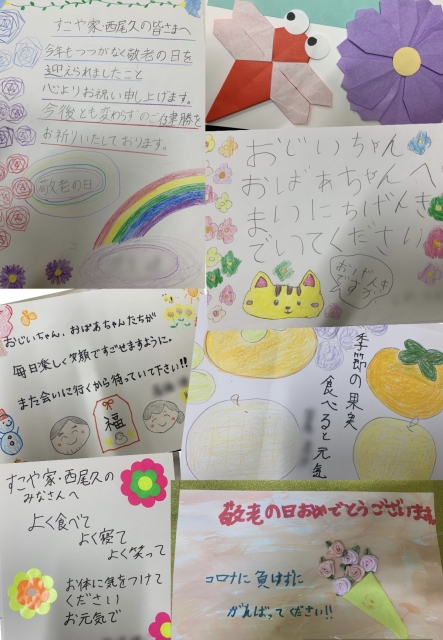 すこや家・西尾久の皆さまへ
今年もつつがなく敬老の日を
迎えられましたこと
心よりお祝い申し上げます。
今後とも変わらずのご健勝を
お祈りいたしております。
敬老の日
おじいちゃん
おばあちゃんへ
まいにちげんき
でいてください
おげんき
ですか
おじいちゃん、おばあちゃんたちが
毎日楽しく笑顔ですごせますように。
また会いに行くから待っていて下さい!!
福
季節の果実
食べると元気
すこや家・西尾久の
みなさんへ
よく食べて
よく寝て
よく笑って
お体に気をつけて
ください
お元気で
敬老の日おめでとうございます
コロナに負けずに
がんばってください!!